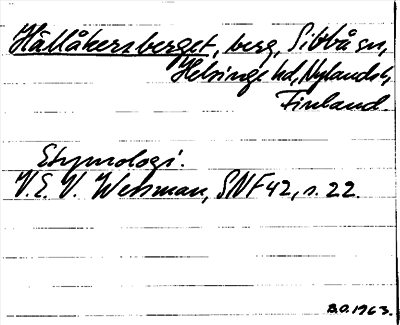 Hällåkersberget, berg, Sibbå sn,
Helsinge hd, Nylands l,
Finland.
Etymologi.
V. E. V. Wessman, SNF 42, s. 22.
B.O. 1963.